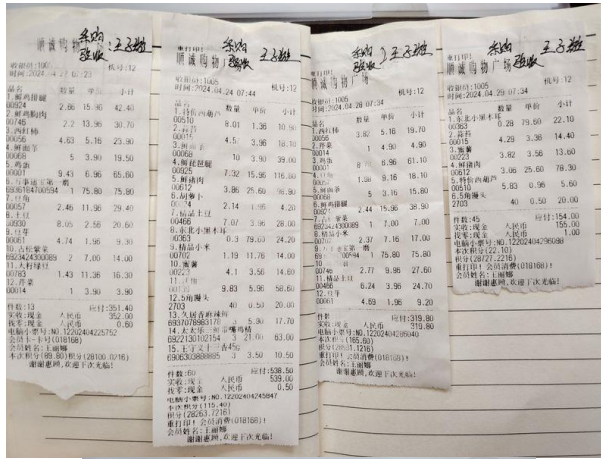 采购
验收:王子璇
顺诚购物广场
收银员:1005 机号:12
品名 数量 单价 小计
1.鲜鸡排腿
00924 2.66 15.96 42.40
2.鲜鸡胸肉
00746 2.2 13.96 30.70
3.西红柿
00056 4.63 5.16 23.90
4.鲜面条
00068 5 3.90 19.50
5.鸡蛋
00001 9.43 6.96 65.60
6959618400594 1 75.80 75.80
7.豆角
00057 2.46 11.96 29.40
8.土豆
8.05 2.56 20.60
9.豆芽
00061 4.74 1.96 9.30
10.古松紫菜
6923424300089 2 7.00 14.00
00783 1.43 11.36 16.30
12.芹菜
00014 1 3.90 3.90
件数:13 应付:351.40
实收:现金 人民币 352.00
找零:现金 人民币 0.60
电脑小票号:NO.12202404225752
会员卡卡号(018168)
会员姓名:王丽娜
本次积分(89.80)积分(28100.0216)
谢谢惠顾,欢迎下次光临!
采购
验收 王子璇
重打印!
顺诚购物广场
收银员:1005 机号:12
时间:2024.04.24 07:44
品名 数量 单价 小计
1.特价西葫芦
00510 8.01 1.36 10.90
2.蒜苔
00015 4.5 3.96
3.鲜面条
00068 10 3.90 39.00
4.鲜琵琶腿
00925 7.32 15.96 116.80
5.鲜猪肉
00612 3.86 25.60
6.胡萝卜
2.14 1.96 4.20
7.精品土豆
00466 7.07 3.96 28.00
8.东北小黑木耳
00363 0.3 79.50
9.精品小米
00702 1.19 11.76 14.00
10.蜜薯
00223 4.1 3.56 14.60
00130 9.83 5.96 58.60
12.5角馒头
2703 40 0.50 20.00
13.久居香麻辣鲜
6937078983178 3 5.90 17.70
6922130102154 3 21.00 63.00
15.王守义十三香45g
6906303888885 3 3.50 10.50
应付:538.50
实收:现金 人民币 539.00
找零:现金 人民币 0.50
电脑小票号:NO.12202404245847
本次积分(115.40)
积分(28263.7216)
重打印!会员消费(018168)!
会员姓名:王丽娜
谢谢惠顾,欢迎下次光临!
采购
验收 王子璇
重打印!
顺诚购物广场
收银员:1005 机号:12
07:34
品名 数量 单价 小计
1.西红柿
00056 3.82 5.16 19.70
2.芹菜
00014 1 4.90 4.90
3.鸡蛋
00001 6.96 61.10
1.98 9.16 18.10
5.鲜面条
00068 5 3.16 15.80
6.鲜鸡排腿
2.44 15.96 38.90
7.古松紫菜
6923424300089 1 7.00 7.00
8.精品小米
2.37 7.16 17.00
75.80 75.80
00746 2.77 9.96 27.60
11.精品土豆
00466 6.24 3.96 24.70
12.豆芽
00061 4.69 1.96 9.20
应付:319.80
实收:现金 人民币 319.80
本次积分(165.60)
重打印!会员消费(018168)!
会员姓名:王丽娜
谢谢惠顾,欢迎下次光临!
采购
验收 王子璇
重打印!
顺诚购物广场
收银员:1005 机号:12
时间:2024.04.29 07:34
品名 数量 单价 小计
1.东北小黑木耳
00363 0.28 79.50 22.10
2.蒜苔
00015 4.29 3.36 14.40
3.蜜薯
00223 3.82 3.56 13.60
4.鲜猪肉
00612 3.06 25.60 78.30
5.特价西葫芦
00510 5.83 0.96 5.60
6.5角馒头
2703 40 0.50 20.00
件数:45 应付:154.00
实收:现金 人民币 155.00
找零:现金 人民币 1.00
电脑小票号:NO.12202404296098
本次积分(22.10)
积分(28727.2216)
重打印!会员消费(018168)!
会员姓名:王丽娜
谢谢惠顾,欢迎下次光临!